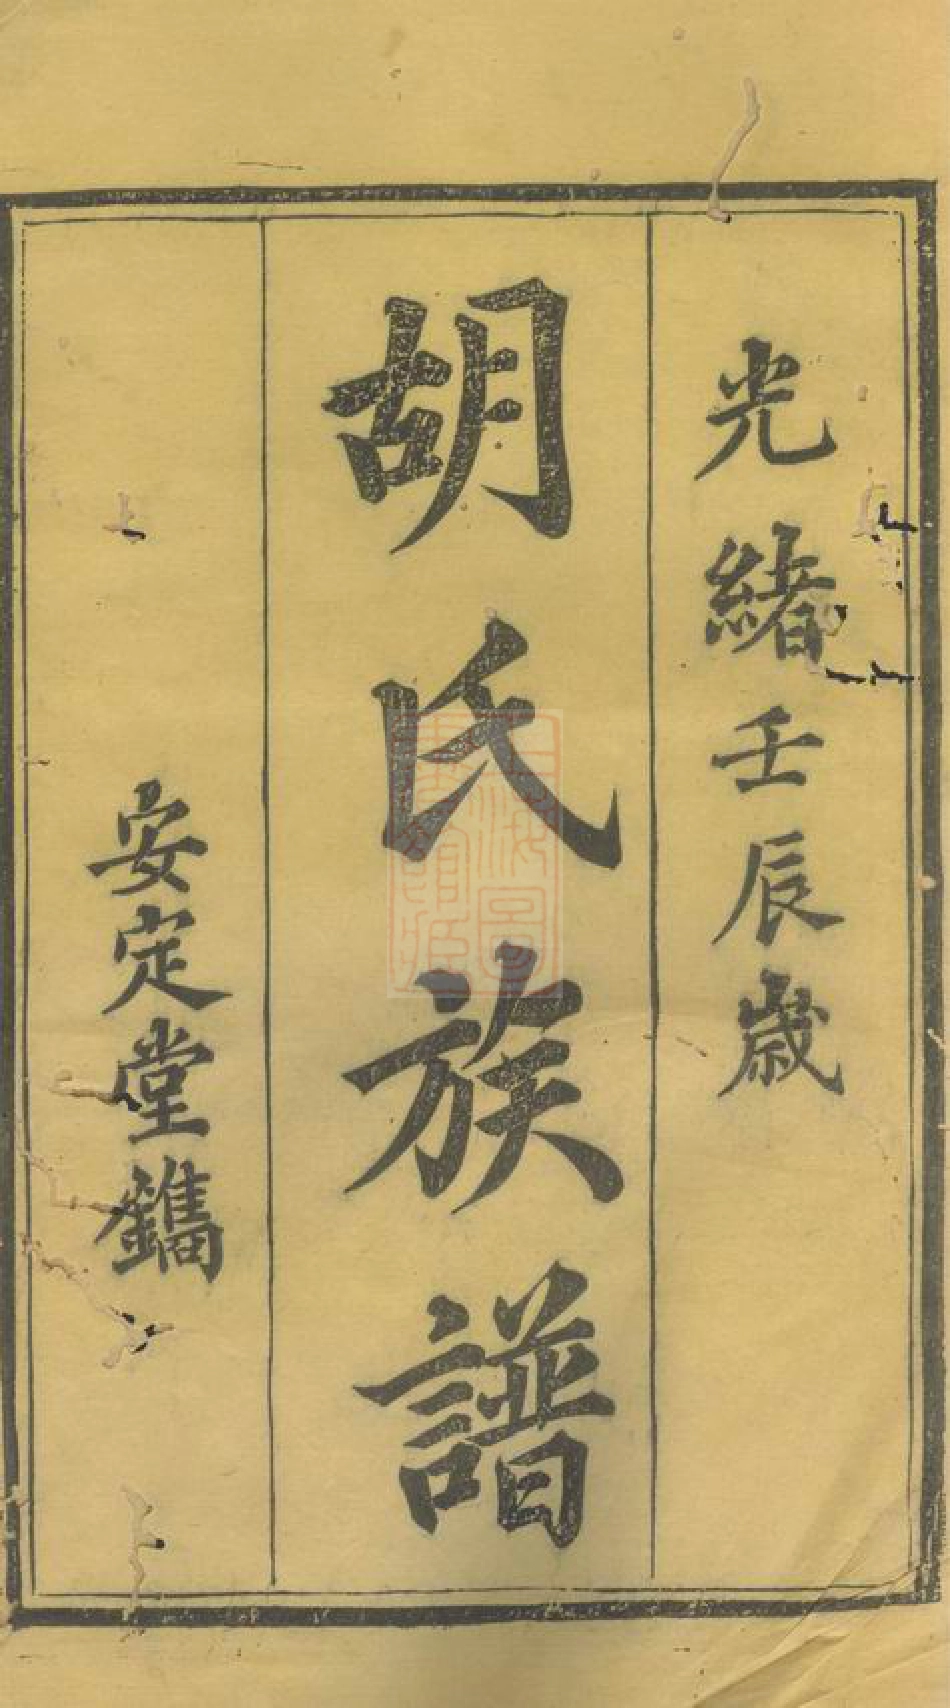 光緒壬辰歲
胡氏族譜
安定堂鐫